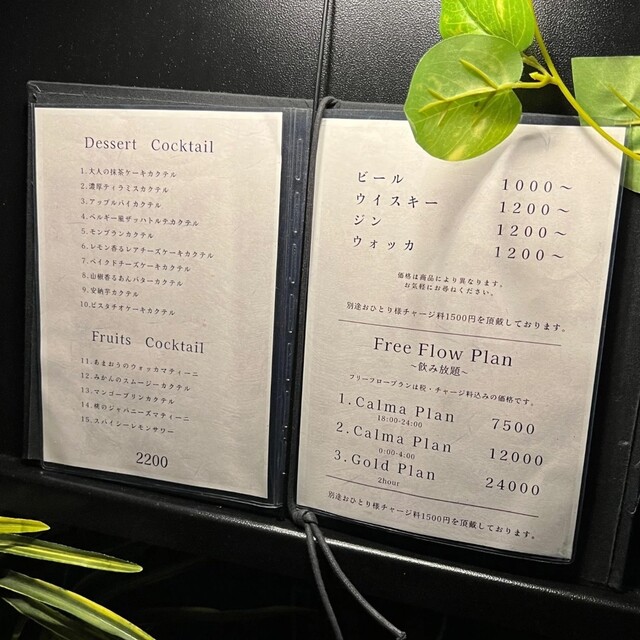 Dessert Cocktail
1.大人の抹茶ケーキカクテル
2.濃厚ティラミスカクテル
3.アップルパイカクテル
4.ベルギー風ザッハトルテカクテル
5.モンブランカクテル
6.レモン香るレアチーズケーキカクテル
7.ベイクドチーズケーキカクテル
8.山椒香るあんバターカクテル
9.安納芋カクテル
10.ピスタチオケーキカクテル
Fruits Cocktail
11.あまおうのウォッカマティーニ
12.みかんのスムージーカクテル
13.マンゴープリンカクテル
14.桃のジャパニーズマティーニ
15.スパイシーレモンサワー
2200
ビール 1000〜
ウイスキー 1200〜
ジン 1200〜
ウォッカ 1200〜
価格は商品により異なります。
お気軽にお尋ねください。
別途おひとり様チャージ料1500円を頂戴しております。
Free Flow Plan
〜飲み放題〜
フリーフロープランは税・チャージ料込みの価格です。
1.Calma Plan 7500
18:00-24:00
2.Calma Plan 12000
0:00-4:00
3.Gold Plan 24000
2hour
別途おひとり様チャージ料1500円を頂戴しております。